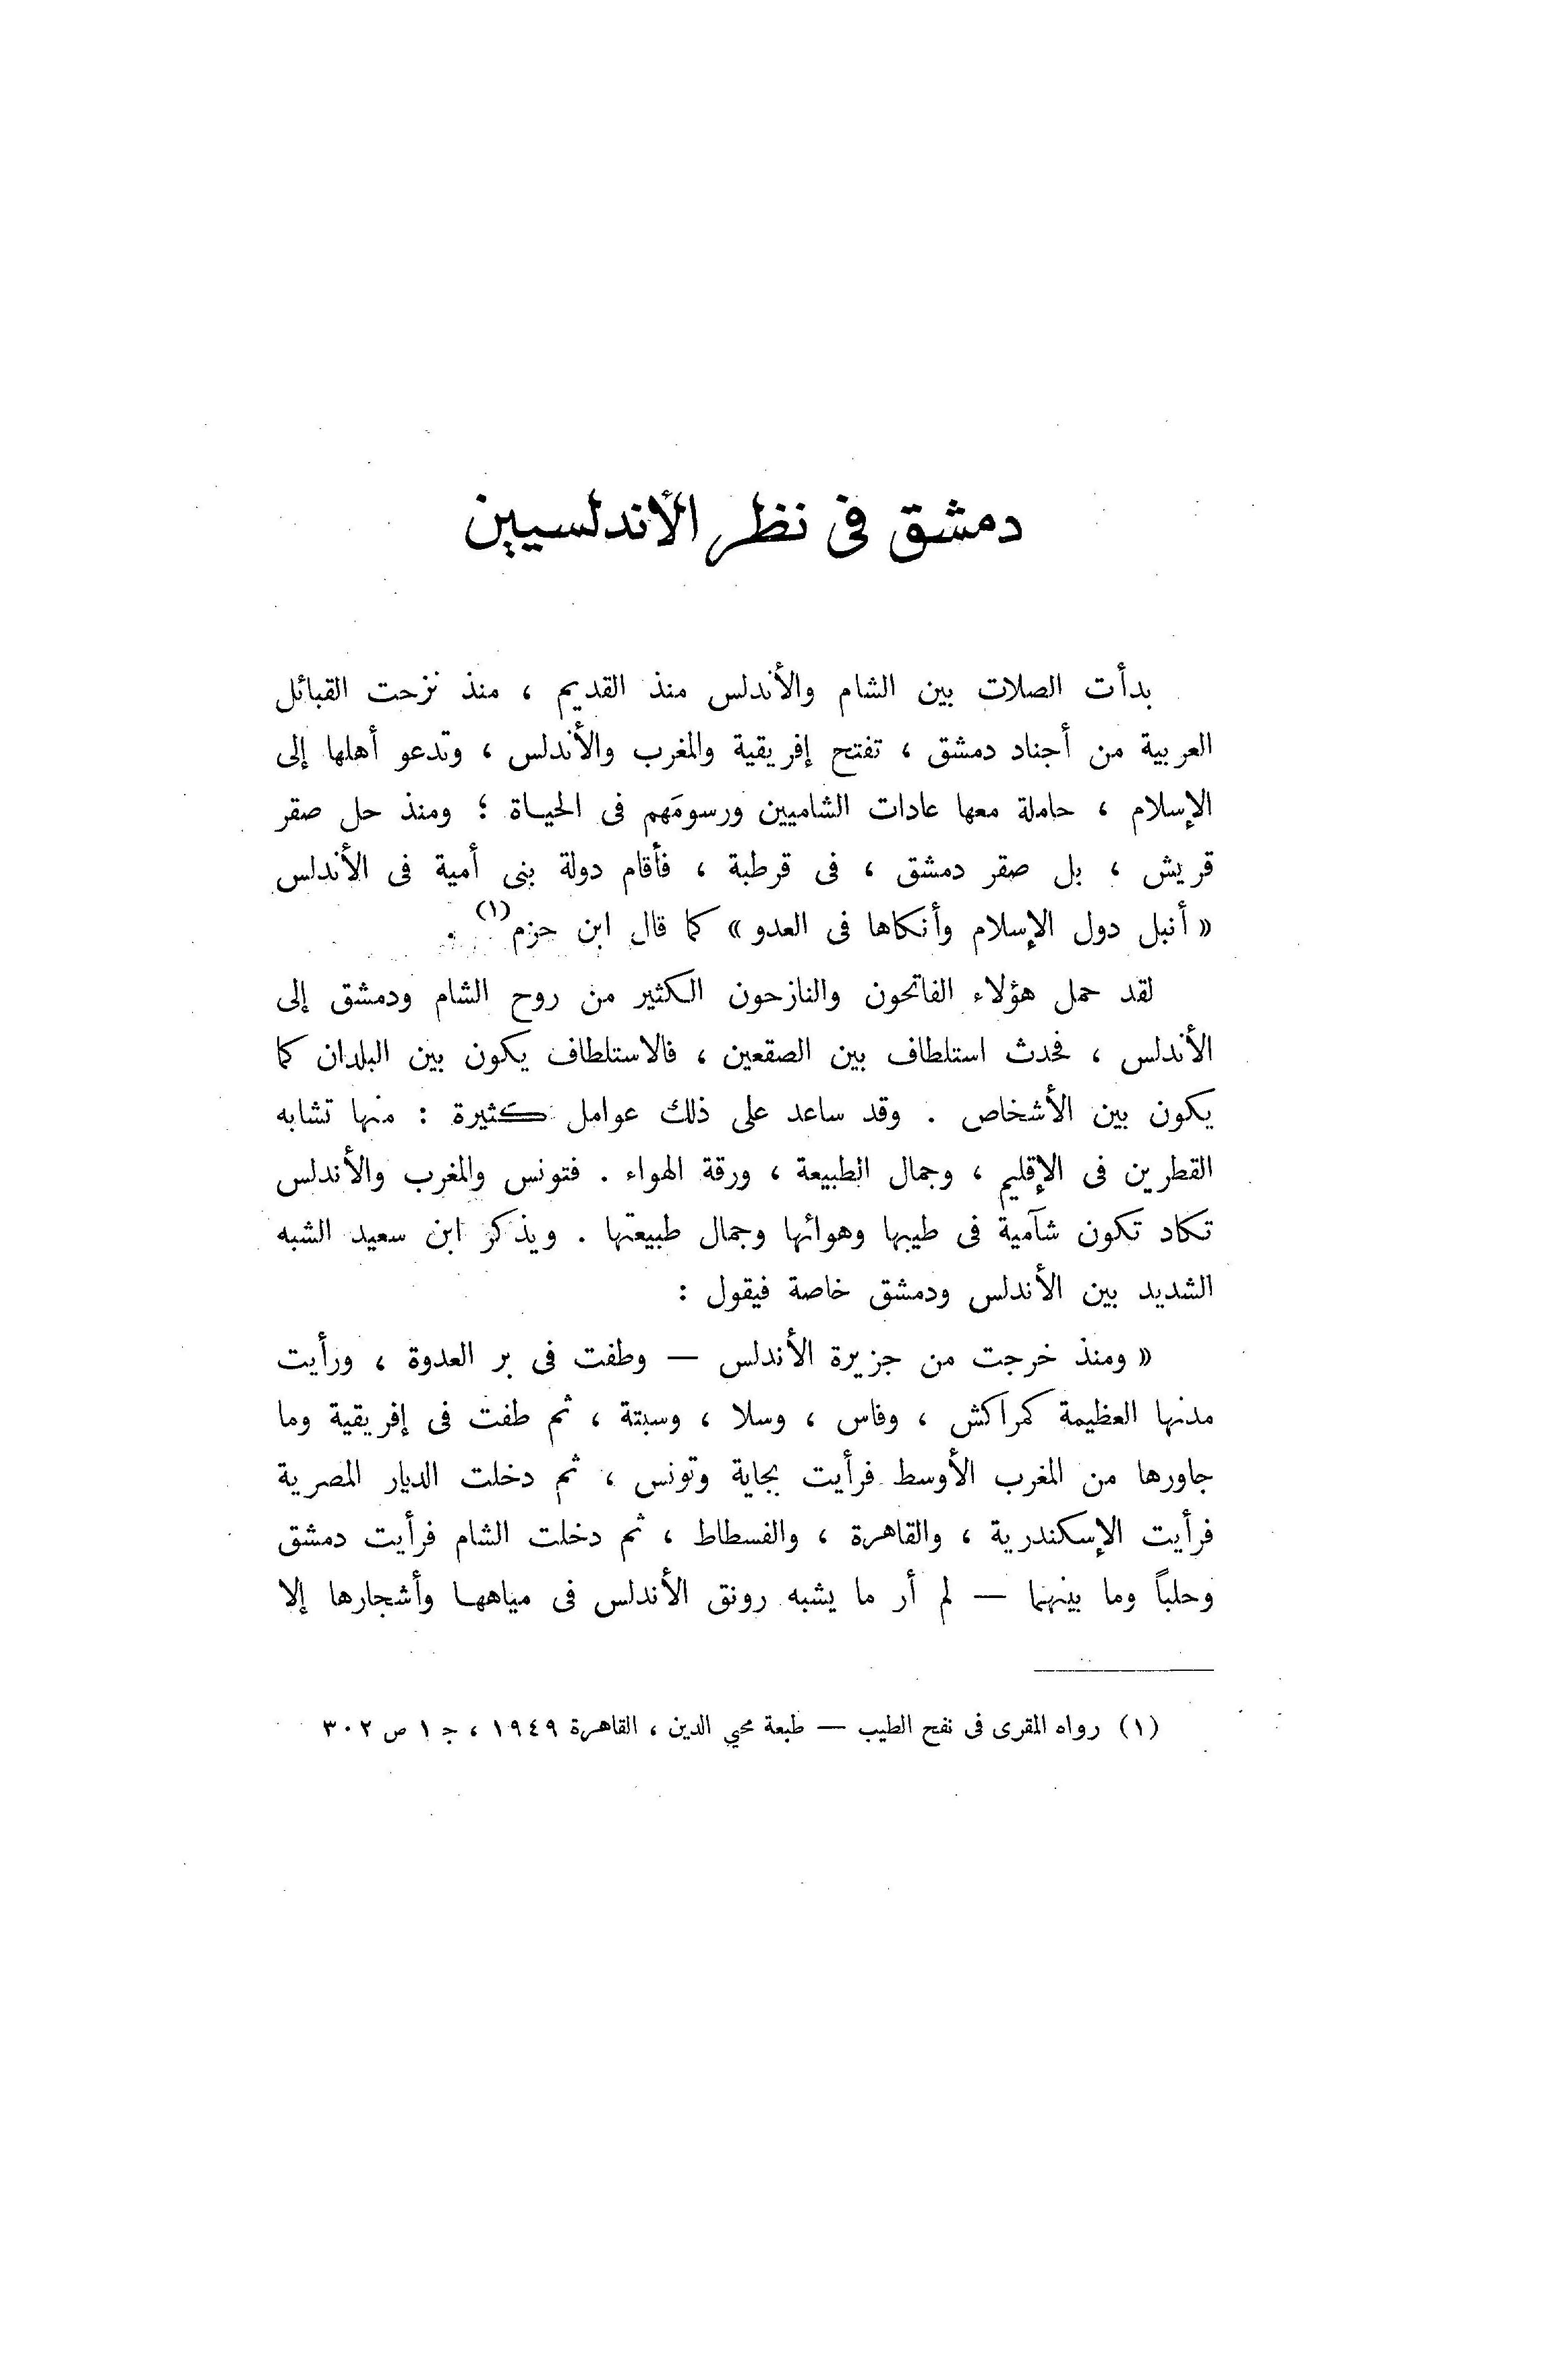 دمشق فى نظر الأندلسيين
بدأت الصلات بين الشام والأندلس منذ القديم ، منذ نزحت القبائل
العربية من أجناد دمشق ، تفتح إفريقية والمغرب والأندلس ، وتدعو أهلها إلى
الإسلام ، حاملة معها عادات الشاميين ورسومَهم فى الحياة ؛ ومنذ حل صقر
قريش ، بل صقر دمشق ، فى قرطبة ، فأقام دولة بنى أمية فى الأندلس
« أنبل دول الإسلام وأنكاها فى العدو » كما قال ابن حزم(١) .
لقد حمل هؤلاء الفاتحون والنازحون الكثير من روح الشام ودمشق إلى
الأندلس ، فحدث استلطاف بين الصقعين ، فالاستلطاف يكون بين البلدان كما
يكون بين الأشخاص . وقد ساعد على ذلك عوامل كثيرة : منها تشابه
القطرين فى الإقليم ، وجمال الطبيعة ، ورقة الهواء . فتونس والمغرب والأندلس
تكاد تكون شآمية فى طيبها وهوائها وجمال طبيعتها . ويذكر ابن سعيد الشبه
الشديد بين الأندلس ودمشق خاصة فيقول :
« ومنذ خرجت من جزيرة الأندلس — وطفت فى بر العدوة ، ورأيت
مدنها العظيمة كمراكش ، وفاس ، وسلا ، وسبتة ، ثم طفت فى إفريقية وما
جاورها من المغرب الأوسط فرأيت بجاية وتونس ، ثم دخلت الديار المصرية
فرأيت الإسكندرية ، والقاهرة ، والفسطاط ، ثم دخلت الشام فرأيت دمشق
وحلباً وما بينهما — لم أر ما يشبه رونق الأندلس فى مياهها وأشجارها إلا
(١) رواه المقرى فى نفح الطيب — طبعة محيي الدين ، القاهرة ١٩٤٩ ، ج ١ ص ٣٠٢